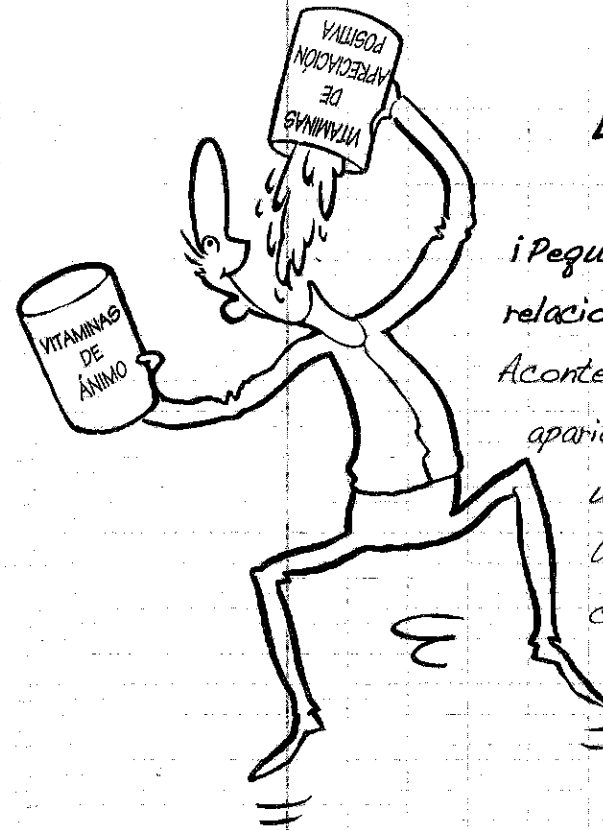 VITAMINAS
DE
APRECIACIÓN
POSITIVA
VITAMINAS
DE
ÁNIMO
¡Pequ
relacio
Aconte
apari